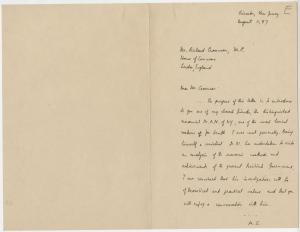 Princeton, New Jersey
August 11, 47
Mr. Richard Crossman, M.P.
House of Commons
London, England
Dear Mr. Crossman:
The purpose of this letter is to introduce
to you one of my closest friends, the distinguished
economist Dr. O.N. of N.Y., one of the most honest
makers of for Truth I ever met personally. Being
himself a socialist Dr. N. has undertaken to make
an analysis of the economic methods and
achievements of the present Socialist Government.
I am convinced that his investigation will be
of theoretical and practical value and that you
will enjoy a conversation with him.
A. E.